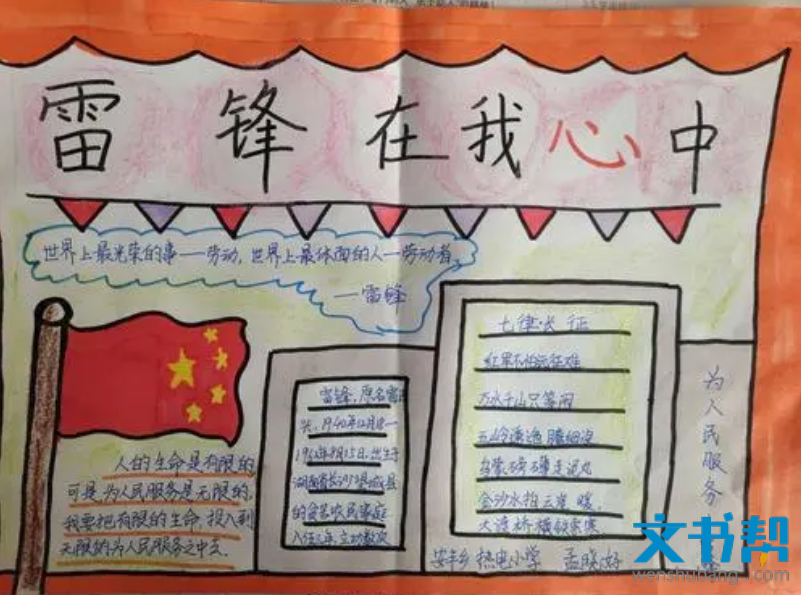 雷锋在我心中
世界上最光荣的事——劳动,世界上最体面的人—劳动者
—雷锋
人的生命是有限的,
可是为人民服务是无限的,
我要把有限的生命,投入到
无限的为人民服务之中去.
雷锋,原名雷
兴,1940年12月18—
1962年8月15日,出生于
湖南省长沙县
的贫苦农民家庭
入伍三年,立功数次
七律·长征
红军不怕远征难
万水千山只等闲
五岭逶迤腾细浪
乌蒙磅礴走泥丸
金沙水拍云崖暖,
大渡桥横铁索寒
为人民服务
安丰乡 热电小学 孟晓好
文书帮
wenshubang.com